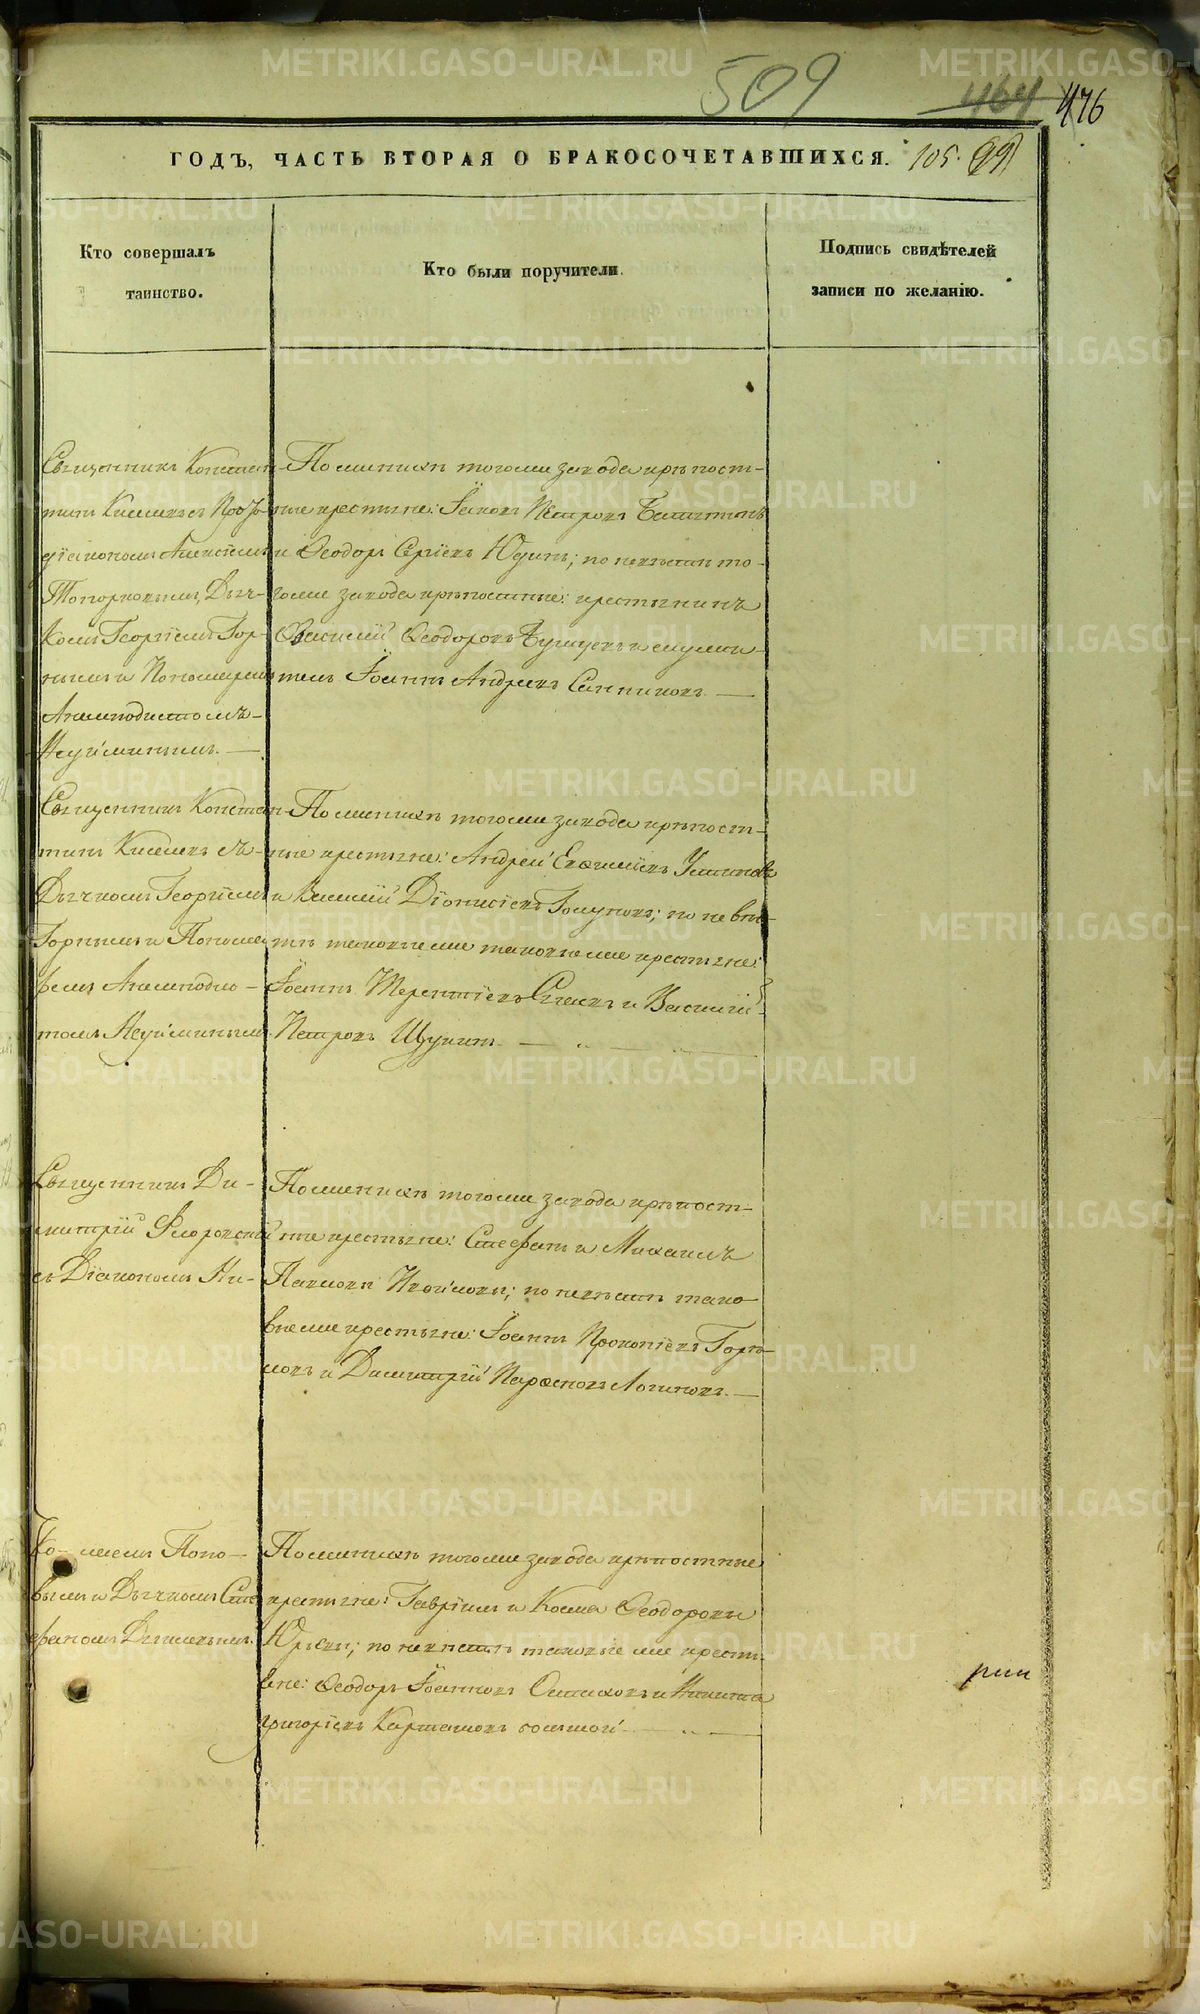 509
464 476
ГОДЪ, ЧАСТЬ ВТОРАЯ О БРАКОСОЧЕТАВШИХСЯ. 105.
Кто совершалъ
таинство.
Кто были поручители.
Подпись свидѣтелей
записи по желанію.
Священникъ Констан-
тинъ Киселевъ съ
діакономъ Алексіемъ
Топорковымъ, Дьяч-
комъ Георгіемъ Гор-
нымъ и Пономаремъ
Анемподистомъ
Неуйминымъ.
По женихѣ тогоже завода крѣпост-
ные крестьяне: Іаковъ Петровъ
и Ѳеодоръ Сергіевъ Юдинъ; по невѣстѣ то-
гоже завода крѣпостные: крестьянинъ
Василій Ѳеодоровъ и служи-
тель Іоаннъ Андреевъ Санниковъ.
Священникъ Констан-
тинъ Киселевъ съ
Дьячкомъ Георгіемъ
Горнымъ и Понома-
ремъ Анемподис-
томъ Неуйминымъ.
По женихѣ тогоже завода крѣпост-
ные крестьяне: Андрей Евѳиміевъ Устиновъ
и Василій Діонисіевъ Голуновъ; по невѣс-
тѣ таковые же крестьяне:
Іоаннъ Терентіевъ и Василій
Петровъ Щукинъ.
Священникъ Ди-
митрій Флоровскій
съ Діакономъ Ни-
По женихѣ тогоже завода крѣпост-
ные крестьяне: Стефанъ и Михаилъ
Павловы; по невѣстѣ тако-
выеже крестьяне: Іоаннъ Прокопіевъ
и Димитрій Логиновъ.
Попо-
вымъ и Дьячкомъ Сте-
фаномъ
По женихѣ тогоже завода крѣпостные
крестьяне: Гавріилъ и Косма Ѳеодоровы
Юрьевы; по невѣстѣ таковые же кресть-
яне: Ѳеодоръ Іоанновъ и Никита
Григоріевъ Карташовъ большой